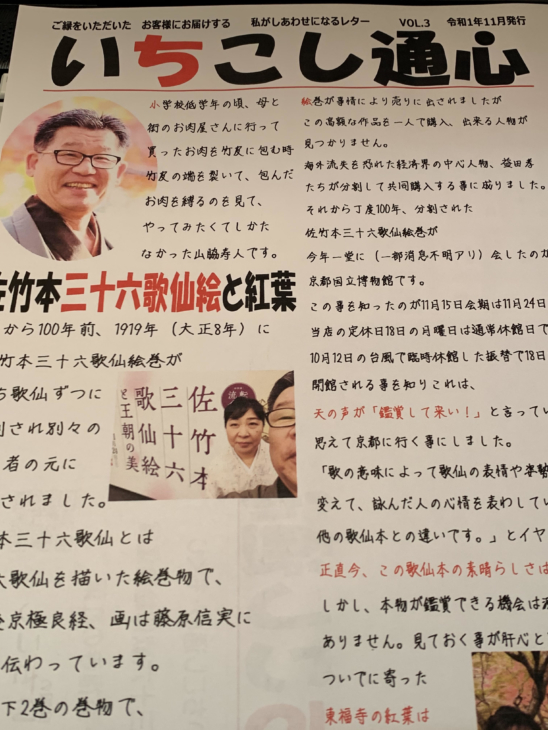 ご縁をいただいた　お客様にお届けする　私がしあわせになるレター　VOL.3　令和1年11月発行
いちこし通心
小学校低学年の頃、母と
街のお肉屋さんに行って
買ったお肉を竹皮に包む時
竹皮の端を裂いて、包んだ
お肉を縛るのを見て、
やってみたくてしかた
なかった山脇寿人です。
佐竹本三十六歌仙絵と紅葉
から100年前、1919年（大正8年）に
竹本三十六歌仙絵巻が
ち歌仙ずつに
別々の
者の元に
されました。
本三十六歌仙とは
六歌仙を描いた絵巻物で、
京極良経、画は藤原信実に
伝わっています。
下2巻の巻物で、
佐竹本
三十六
歌仙絵
と王朝の美
流転
絵巻が事情により売りに出されましたが
この高額な作品を一人で購入、出来る人物が
見つかりません。
海外流失を恐れた経済界の中心人物、益田孝
たちが分割して共同購入する事に成りました。
それから丁度100年、分割された
佐竹本三十六歌仙絵巻が
今年一堂に（一部消息不明アリ）会したのが
京都国立博物館です。
この事を知ったのが11月15日会期は11月24日
当店の定休日18日の月曜日は通常休館日で
10月12日の台風で臨時休館した振替で18日
開館される事を知りこれは、
天の声が「鑑賞して来い！」と言ってい
思えて京都に行く事にしました。
「歌の意味によって歌仙の表情や姿勢
変えて、詠んだ人の心情を表わしてい
他の歌仙本との違いです。」とイヤ
正直今、この歌仙本の素晴らしさは
しかし、本物が鑑賞できる機会は
ありません。見ておく事が肝心と
ついでに寄った
東福寺の紅葉は